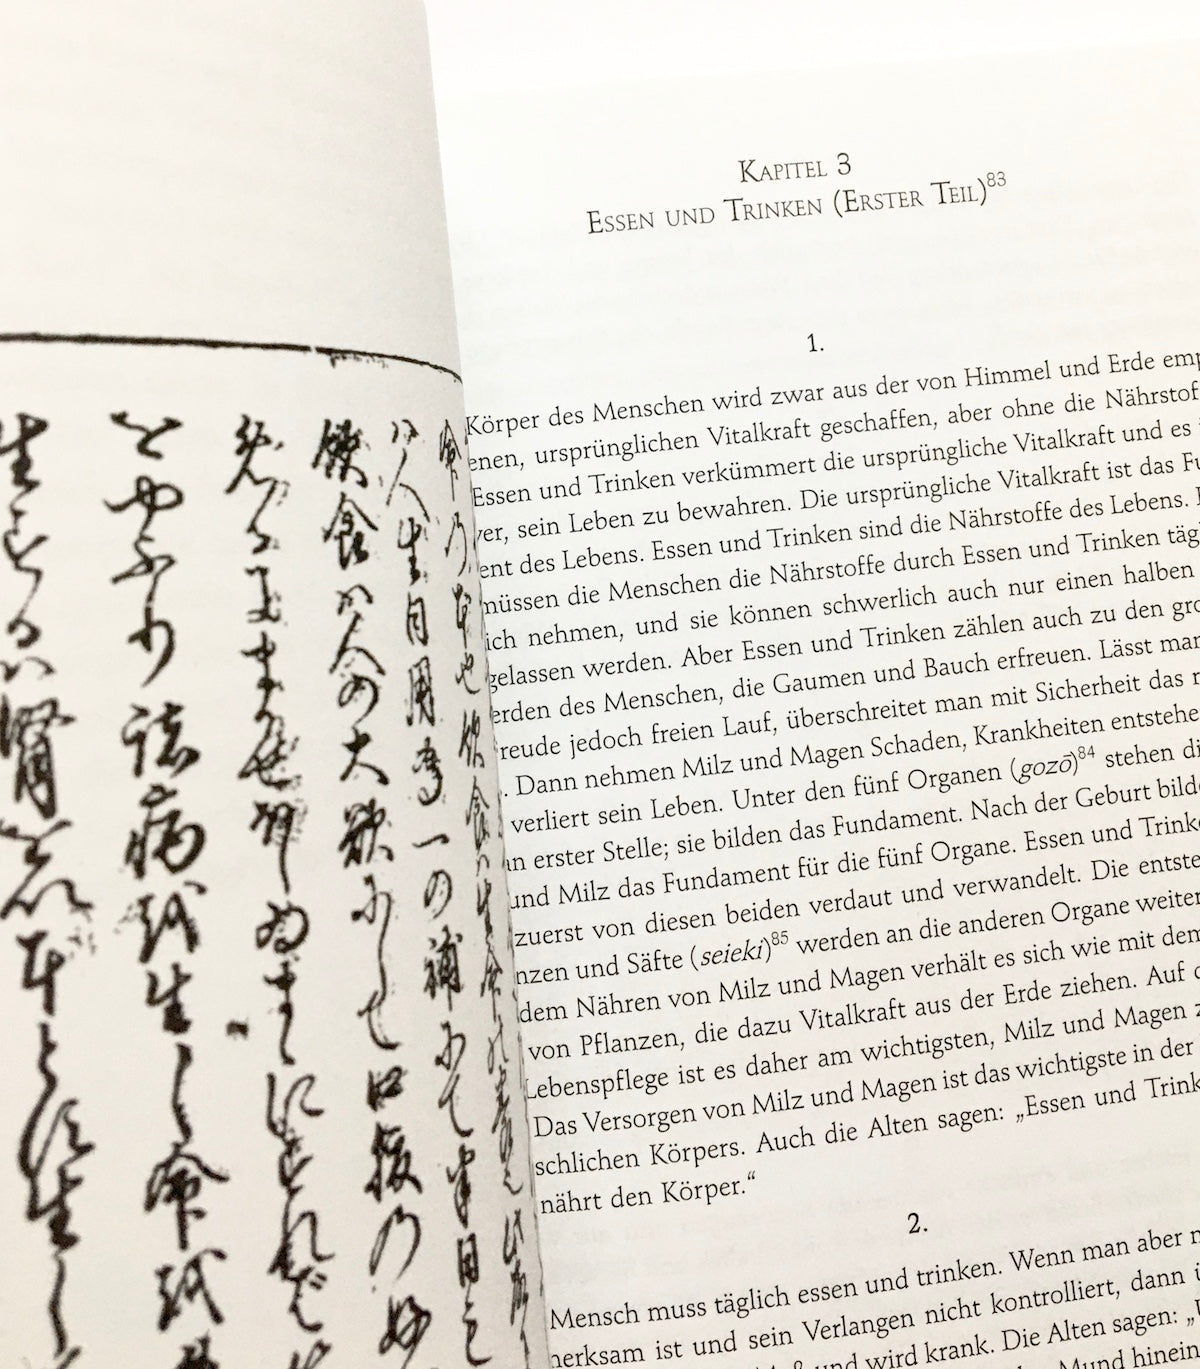 命乃本也飲食ハ生命の養也此故
ハ人生日用専一の補にて半日も
飲食ハ人の大欲にして口腹乃好
めるにまかせ
をやふり諸病を生し命を
生するハ腎を以本とす生し
KAPITEL 3
ESSEN UND TRINKEN (ERSTER TEIL)83
1.
Körper des Menschen wird zwar aus der von Himmel und Erde
ursprünglichen Vitalkraft geschaffen, aber ohne die
Essen und Trinken verkümmert die ursprüngliche Vitalkraft und es
sein Leben zu bewahren. Die ursprüngliche Vitalkraft ist das
des Lebens. Essen und Trinken sind die Nährstoffe des Lebens.
müssen die Menschen die Nährstoffe durch Essen und Trinken
nehmen, und sie können schwerlich auch nur einen halben
gelassen werden. Aber Essen und Trinken zählen auch zu den
des Menschen, die Gaumen und Bauch erfreuen. Lässt
jedoch freien Lauf, überschreitet man mit Sicherheit das
. Dann nehmen Milz und Magen Schaden, Krankheiten
verliert sein Leben. Unter den fünf Organen (gozō)84 stehen
an erster Stelle; sie bilden das Fundament. Nach der Geburt
und Milz das Fundament für die fünf Organe. Essen und
zuerst von diesen beiden verdaut und verwandelt. Die
und Säfte (seieki)85 werden an die anderen Organe
dem Nähren von Milz und Magen verhält es sich wie mit
von Pflanzen, die dazu Vitalkraft aus der Erde ziehen. Auf
Lebenspflege ist es daher am wichtigsten, Milz und Magen
Das Versorgen von Milz und Magen ist das wichtigste in der
schlichen Körpers. Auch die Alten sagen: „Essen und
nährt den Körper.“
2.
Mensch muss täglich essen und trinken. Wenn man aber
ist und sein Verlangen nicht kontrolliert, dann
und wird krank. Die Alten sagen:
Mund